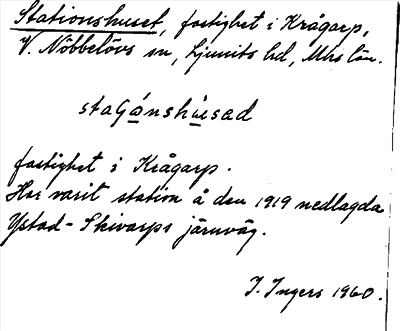 Stationshuset, fastighet i Krågarp,
V. Nöbbelövs sn, Ljunits hd, Mhs län.
staGánshúesad
fastighet i Krågarp.
Har varit station å den 1919 nedlagda
Ystad-Skivarps järnväg.
I. Ingers 1960.